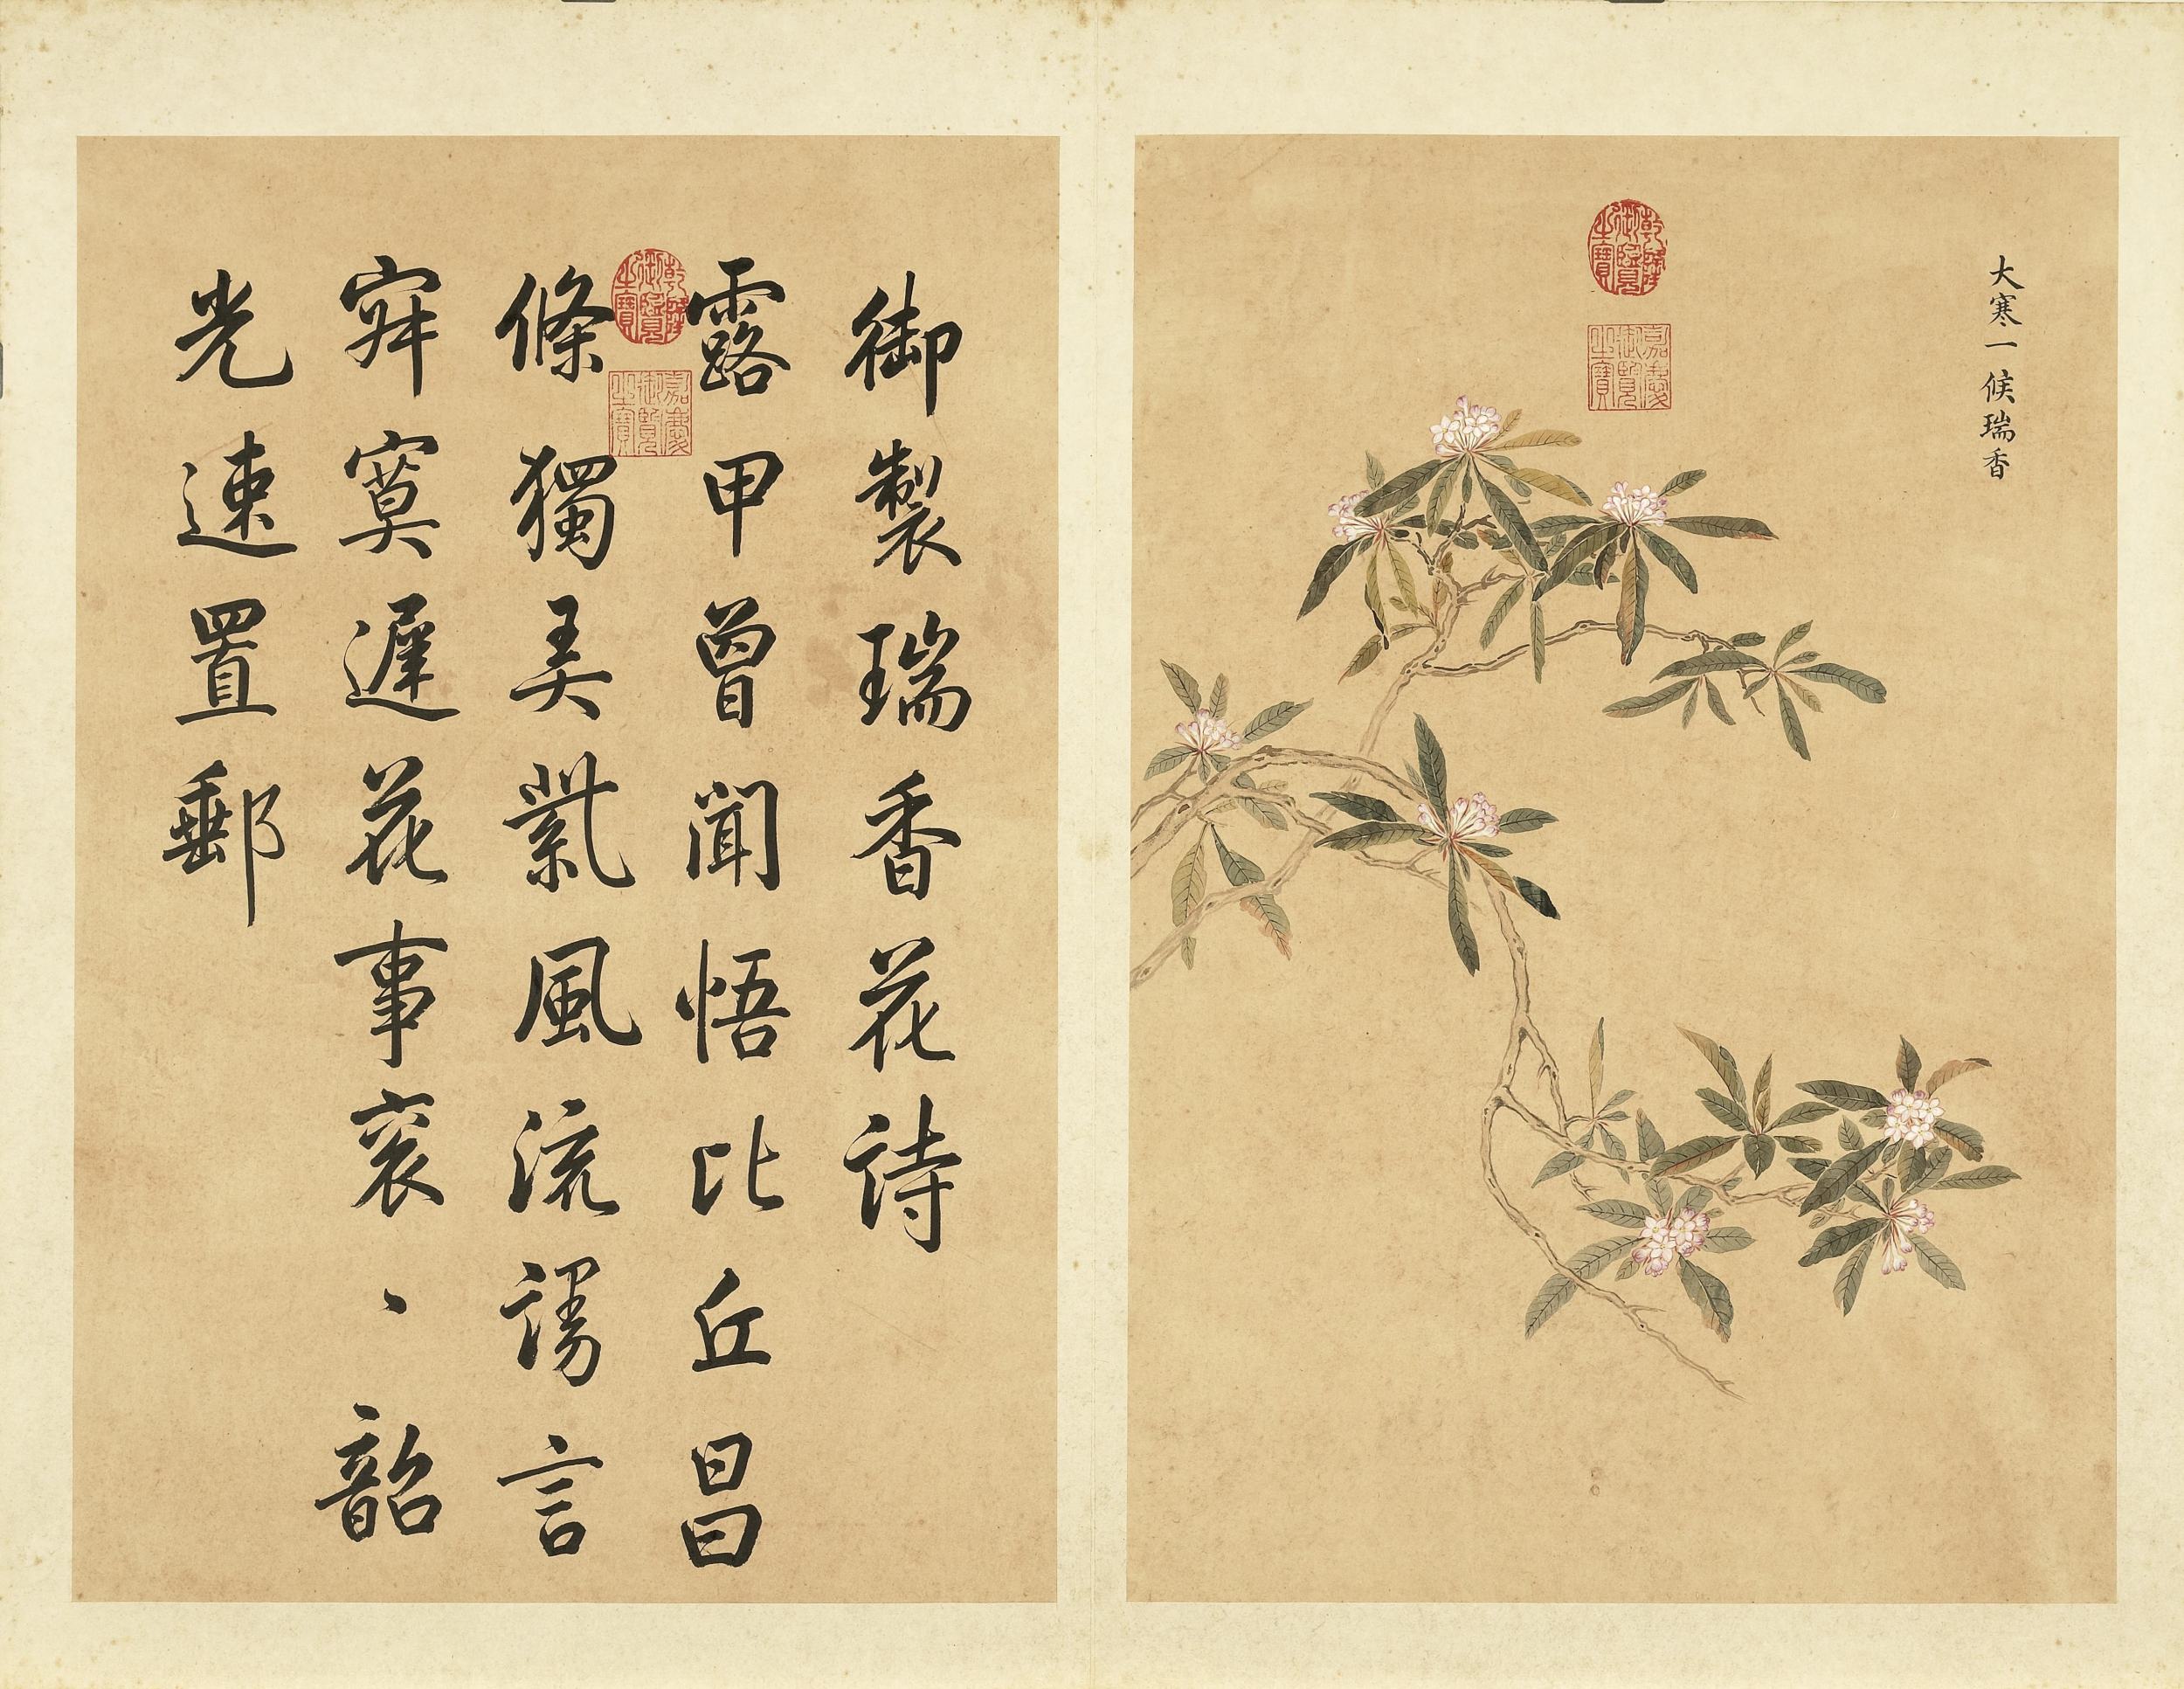 大寒一候瑞香
乾隆御覽之寶
嘉慶御覽之寶
御製瑞香花詩
露甲曾聞悟比丘昌
條獨美㲋風流謬言
寂寞遲花事衮〻韶
光速置郵
乾隆御覽之寶
嘉慶御覽之寶